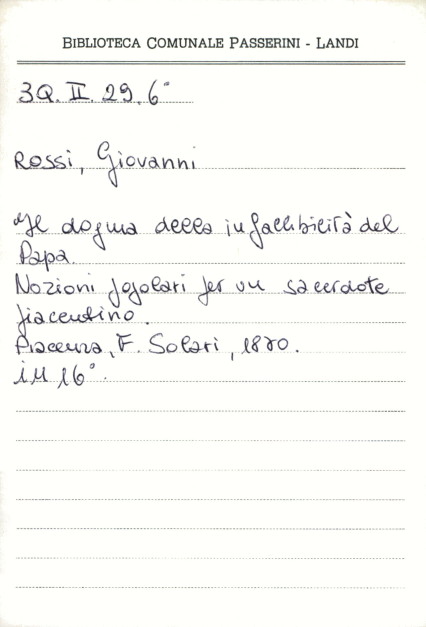 BIBLIOTECA COMUNALE PASSERINI - LANDI
3Q. II. 29. 6°
Rossi, Giovanni
Il dogma della infallibilità del
Papa.
Nozioni popolari per un sacerdote
piacentino.
Piacenza, F. Solari, 1870.
in 16°.